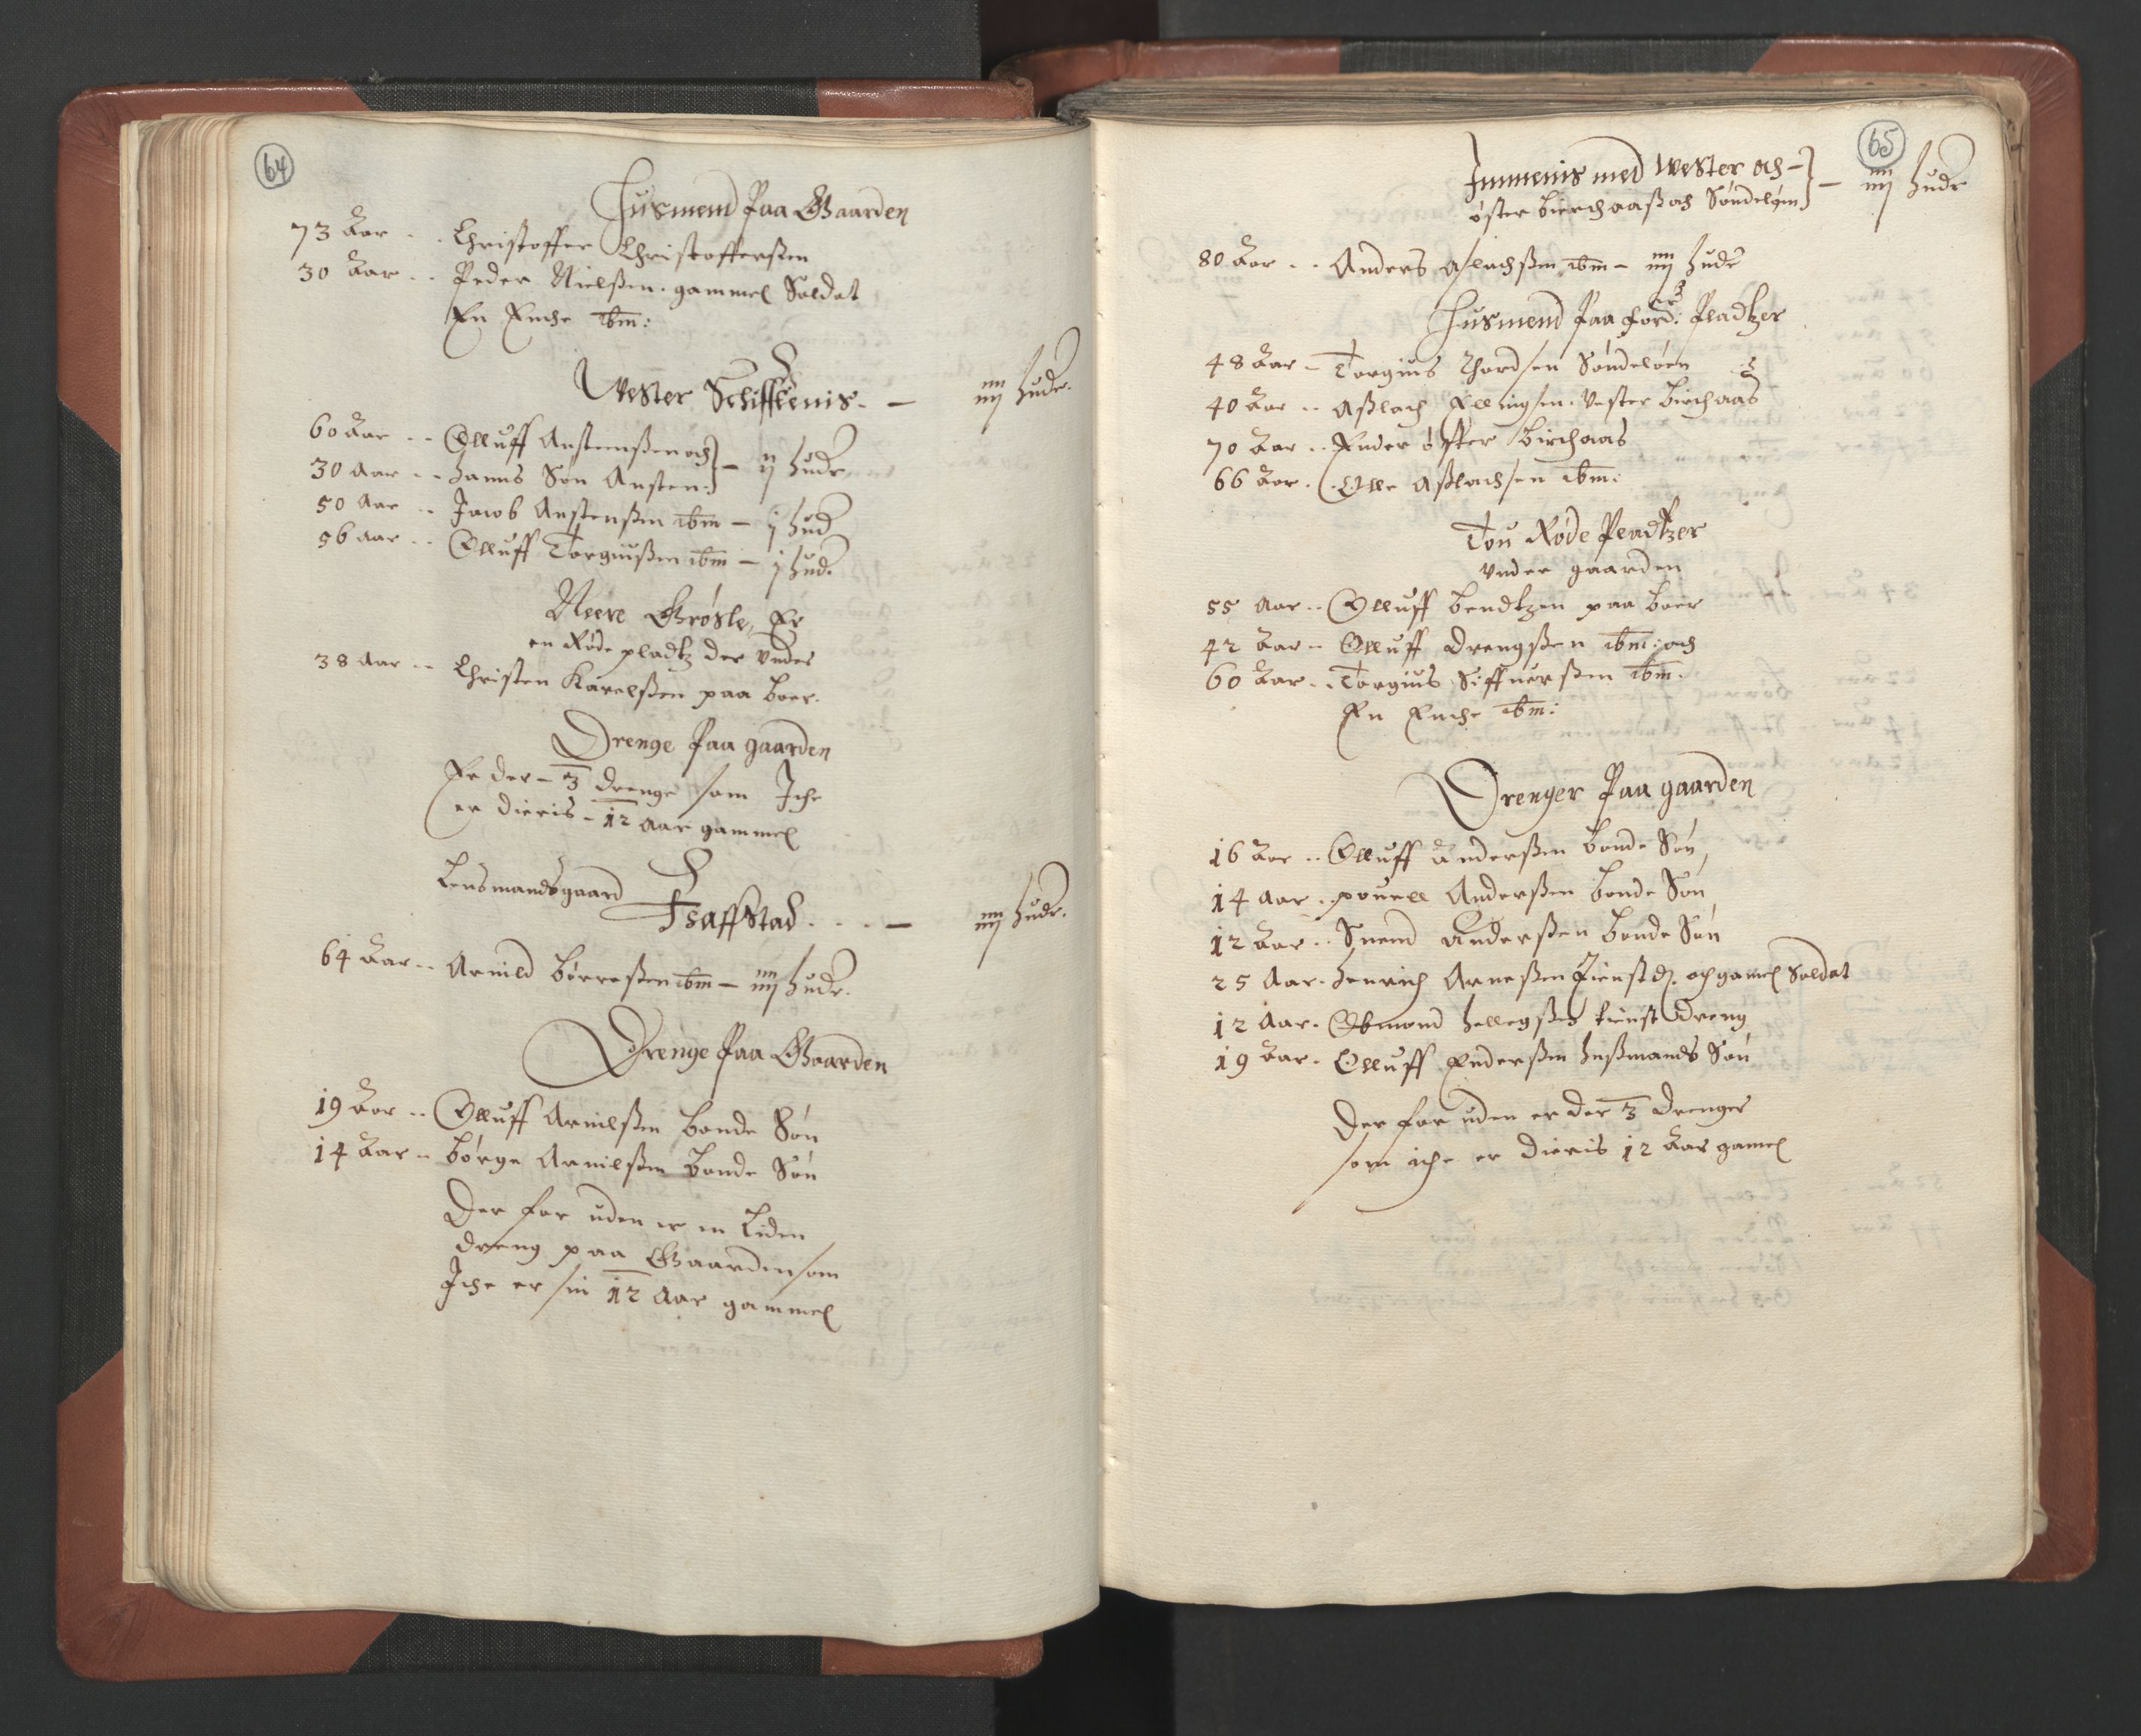 64
Husmend Paa Gaarden
73 Aar .. Christoffer Christofferßen
30 Aar .. Peder Nielßen. gammel Soldat
En Enche ibm:
Wester Schifflenis. – iiij hude.
60 Aar .. Olluff Anstensßen och
30 Aar .. Hanns Søn Ansten } – ij hude
50 Aar .. Jacob Anstenßen ibm – j hud
56 Aar .. Olluff Torgiußen ibm – j hud.
Neere Grøsle, Er
en Røde pladtz der Under
38 Aar .. Christen Karelßen paa boer.
Drenge Paa gaarden
Er der – 3 drenge som Iche
er dieris – 12 Aar gammel
Lensmandsgaard
Fsaffstad . . . . – iiij hude.
64 Aar .. Arnild børreßen ibm – iiij hude.
Drenge Paa Gaarden
19 Aar .. Olluff Arnilßen bonde Søn
14 Aar .. børge Arnilßen bonde Søn
Der for uden er en Liden
dreng paa Gaarden som
Iche er sin 12 Aar gammel
65
Immenis med Wester och –
øster birchaaß och Søndeløen } – iiij hude
80 Aar .. Anders Aslachßen ibm – iiij hude
Husmend Paa ford: er 3 Pladtzer
48 Aar – Torgius Thordsen Søndeløen
40 Aar .. Aßlach Ellingsen. Vester birchaas
70 Aar .. Ender øster birchaas
66 Aar . Olle Aßlachsen ibm:
Tou Røde Pladtzer
Under gaarden
55 Aar .. Olluff bendtzen paa boer
42 Aar .. Olluff Drengßen ibm: och
60 Aar .. Torgius Siffuerßen ibm.
En Enche ibm:
Drenger Paa gaarden
16 Aar .. Olluff Anderßen bonde Søn
14 Aar . pouell Anderßen bonde Søn
12 Aar .. Suend Anderßen bonde Søn
25 Aar . Henrich Arneßen Tienst d. och gamel Soldat
12 Aar . Obmond Hellegßen tienst dreng
19 Aar . Olluff Enderßen Hußmands Søn
Der for uden er der 3 drenger
som iche er dieris 12 Aar gamel